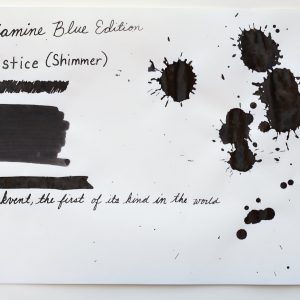 amine Blue Edition
stice (Shimmer)
kvent, the first of its kind in the world